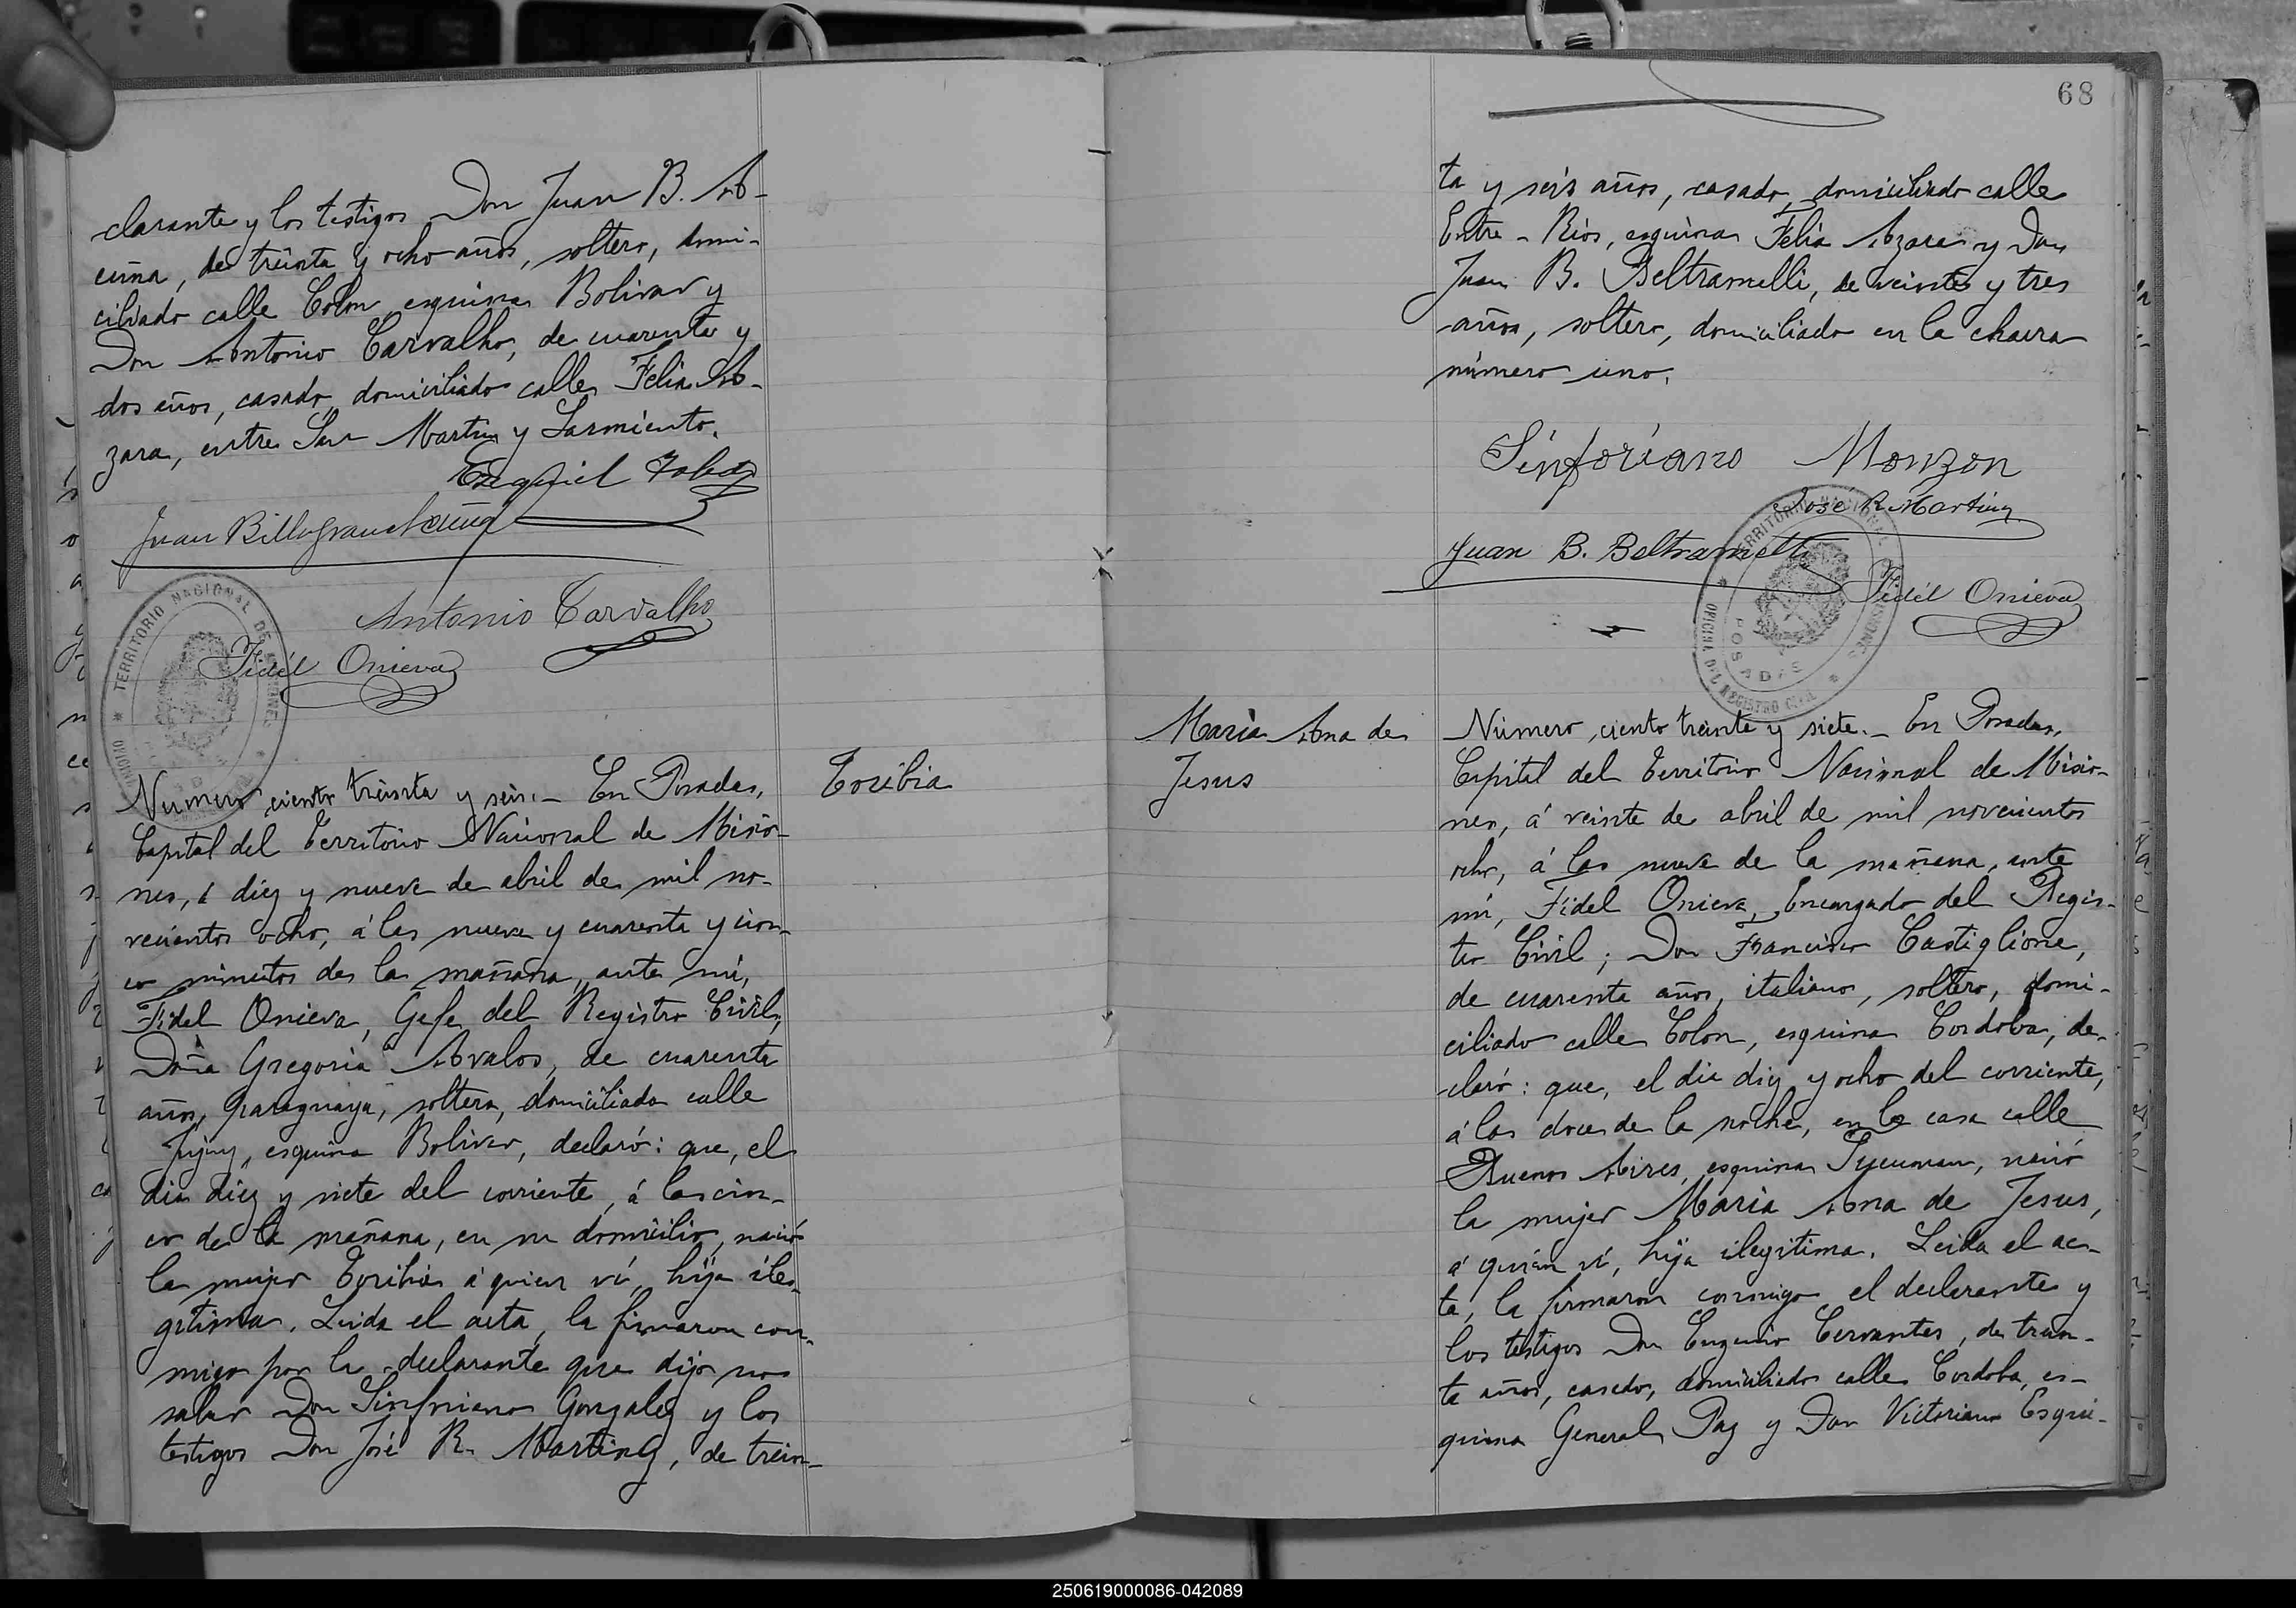 clarante y los testigos Don Juan B. A-
cuña, de treinta y ocho años, soltero, domi-
ciliado calle Colon, esquina Bolivar y
Don Antonio Carvalho, de cuarenta y
dos años, casado, domiciliado calle Felix A-
zara, entre San Martin y Sarmiento.
Ezequiel
Juan Billagran Acuña
Antonio Carvalho
Fidél Onieva
TERRITORIO NACIONAL DE MISIONES
Numero ciento treinta y seis.- En Posadas,
Capital del Territorio Nacional de Misio-
nes, á diez y nueve de abril de mil no-
vecientos ocho, á las nueve y cuarenta y cin-
co minutos de la mañana, ante mí,
Fidel Onieva, Gefe del Registro Civil,
Doña Gregoria Avalos, de cuarenta
años, paraguaya, soltera, domiciliada calle
Jujuy, esquina Bolivar, declaró: que, el
dia diez y siete del corriente, á las cin-
co de la mañana, en su domicilio, nació
la mujer Toribia á quien ví, hija ile-
gitima. Leida el acta, la firmaron con-
migo por la declarante que dijo no
saber Don Sinforiano Gonzalez y los
testigos Don José R. Martinez, de trein-
Toribia
68
ta y seis años, casado, domiciliado calle
Entre-Rios, esquina Felix Azara y Don
Juan B. Beltramelli, de veinte y tres
años, soltero, domiciliado en la chacra
número uno.
Sinforiano Monzon
José R Martinez
Juan B. Beltramelli
Fidél Onieva
TERRITORIO NACIONAL DE MISIONES
POSADAS
OFICINA DEL REGISTRO CIVIL
Maria Ana de
Jesus
Número ciento treinta y siete.- En Posadas,
Capital del Territorio Nacional de Misio-
nes, á veinte de abril de mil novecientos
ocho, á las nueve de la mañana, ante
mí, Fidel Onieva, Encargado del Regis-
tro Civil; Don Francisco Castiglione,
de cuarenta años, italiano, soltero, domi-
ciliado calle Colon, esquina Cordoba, de-
claró: que, el dia diez y ocho del corriente,
á las doce de la noche, en la casa calle
Buenos Aires, esquina Tucuman, nació
la mujer Maria Ana de Jesus,
á quien ví, hija ilegitima. Leida el ac-
ta, la firmaron conmigo el declarante y
los testigos Don Eugenio Cervantes, de trein-
ta años, casado, domiciliado calle Cordoba, es-
quina General Paz y Don Victoriano Esqui-
250619000086-042089